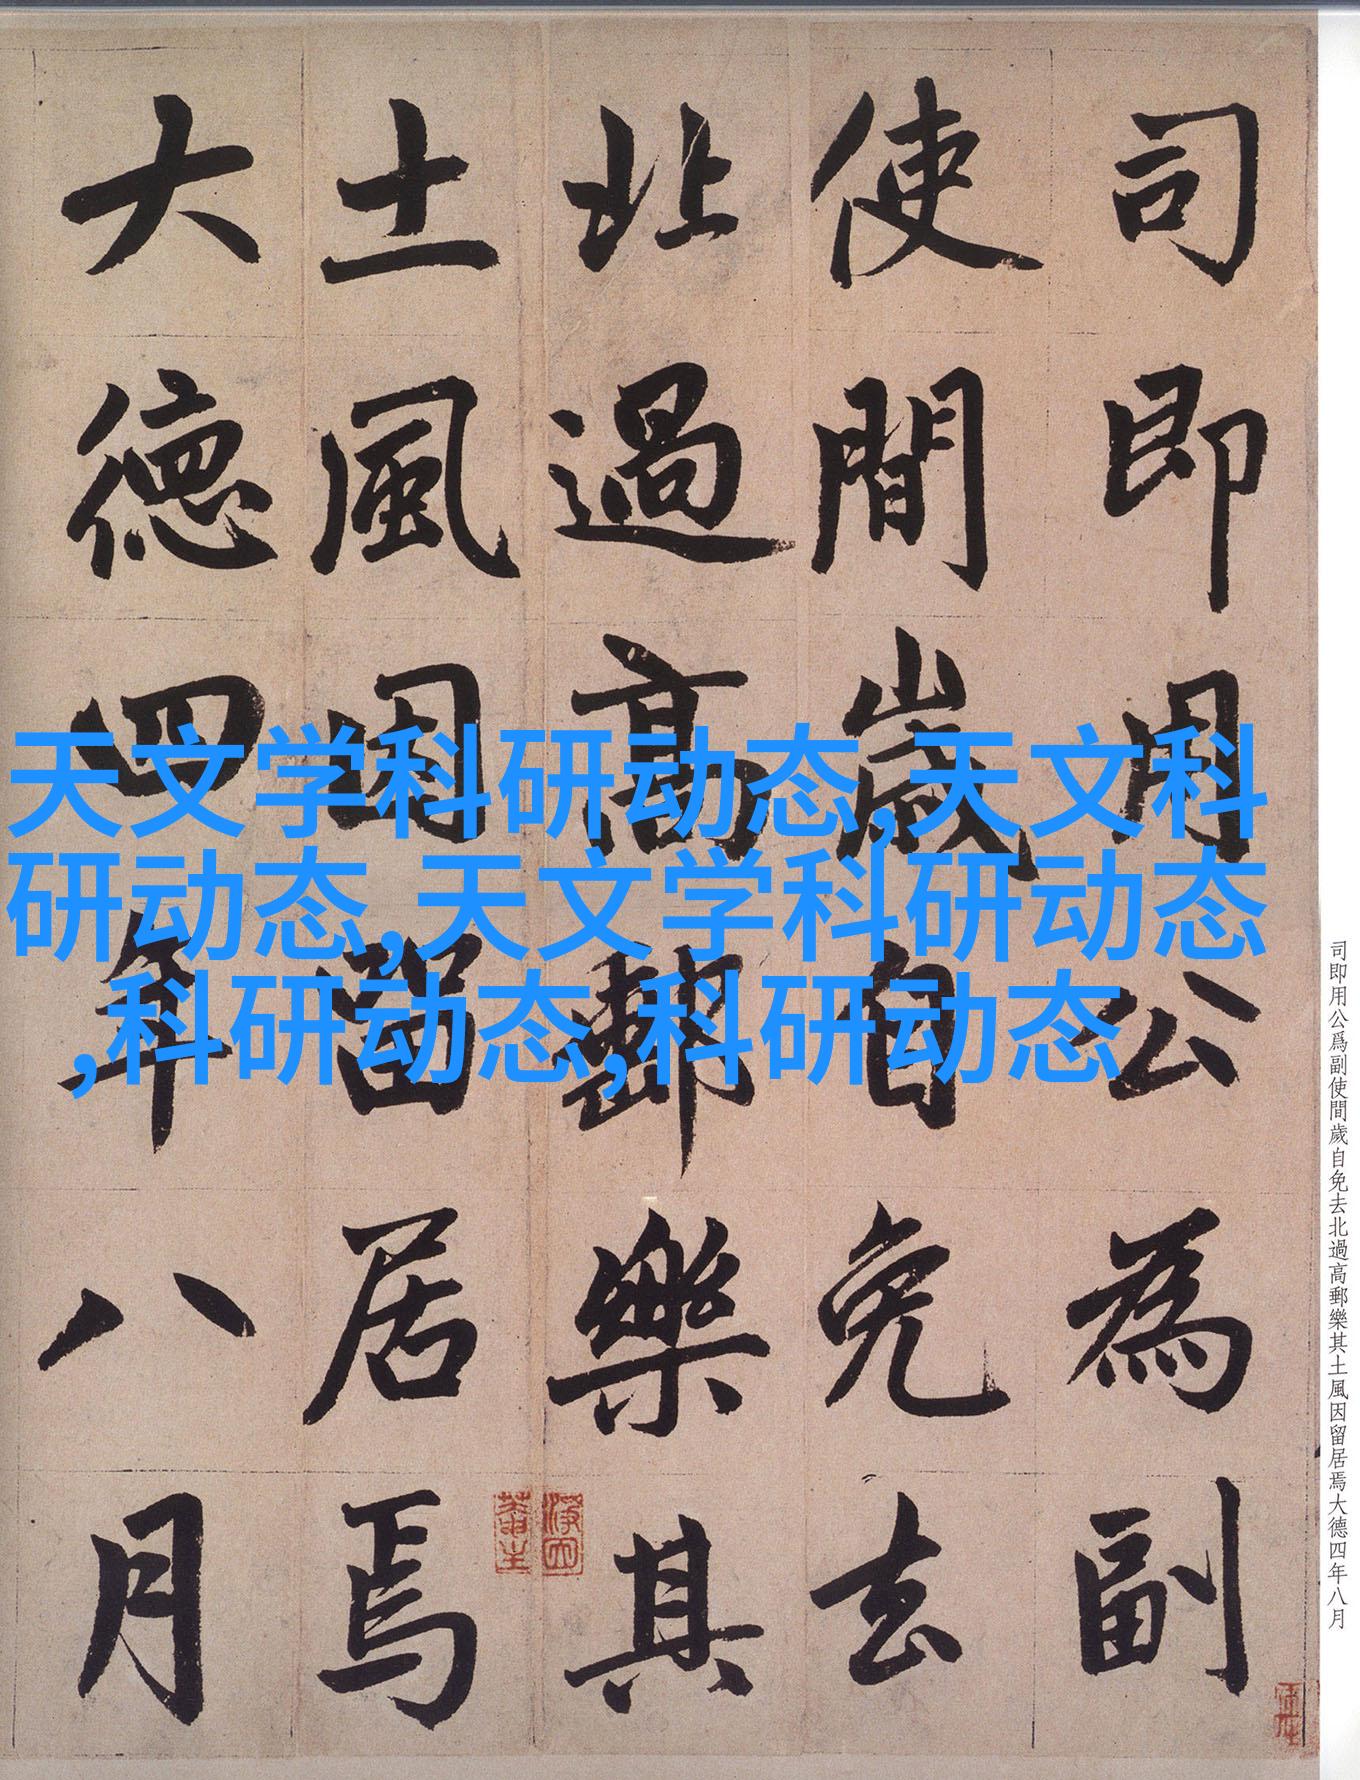 司即用公為副
使間歲自免去
北過高郵樂其
土風因留居焉
大德四年八月
天文学科研动态,天文科
研动态,天文学科研动态
,科研动态,科研动态
司即用公爲副使間歲自免去北過高郵樂其土風因留居焉大德四年八月